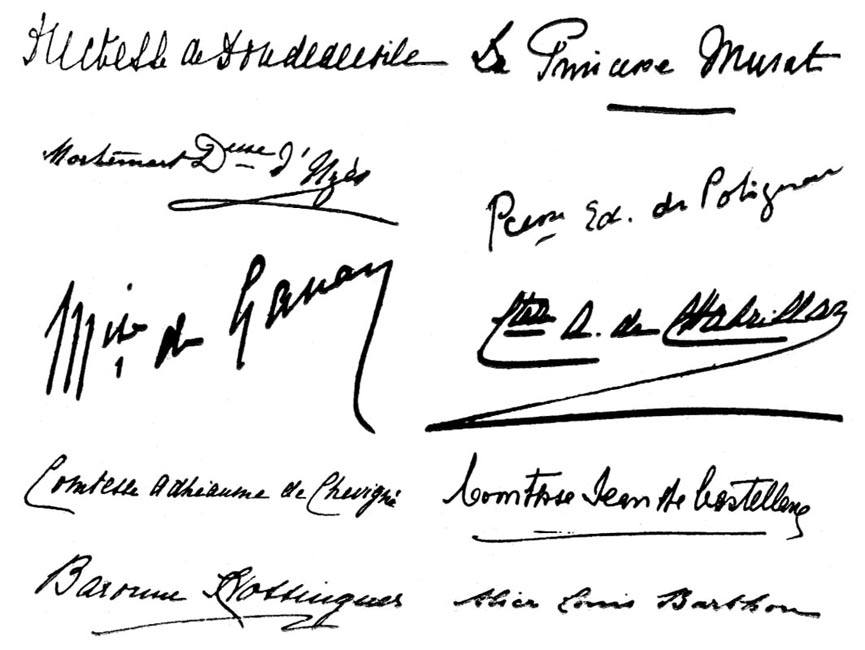 Duchesse de Doudeauville
La Princesse Murat
Mortemart Dsse d'Uzès
Pcesse Ed. de Polignac
Mise de Ganay
Ctesse A. de Chabrillan
Comtesse Adhéaume de Chevigné
Comtesse Jean de Castellane
Baronne Hottinguer
Alice Louis Barthou